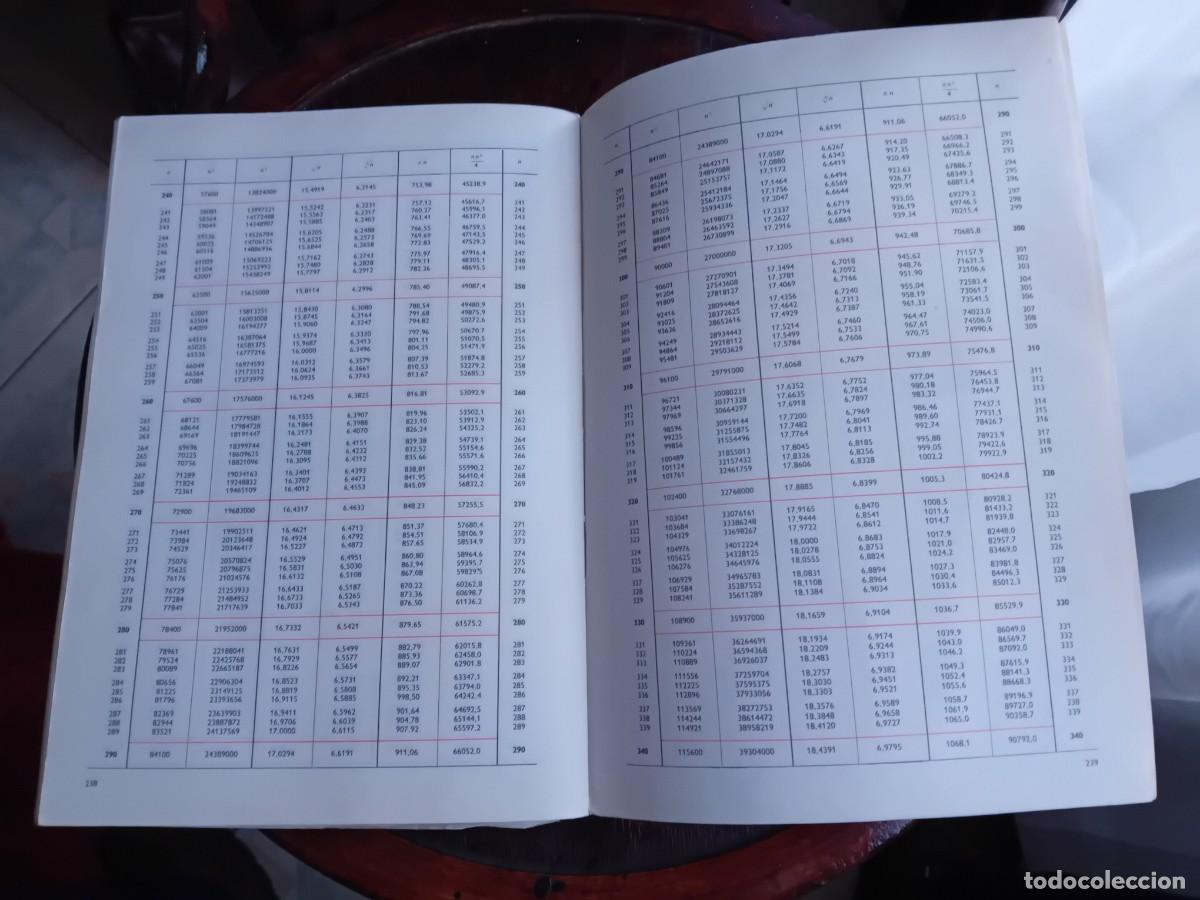 n n² n³ √n ∛n π n π n² / 4 n
240 57600 13824000 15,4919 6,2145 753,98 45238,9 240
241 58081 13997521 15,5242 6,2231 757,12 45616,7 241
242 58564 14172488 15,5563 6,2317 760,27 45996,1 242
243 59049 14348907 15,5885 6,2403 763,41 46377,0 243
244 59536 14526784 15,6205 6,2488 766,55 46759,5 244
245 60025 14706125 15,6525 6,2573 769,69 47143,5 245
246 60516 14886936 15,6844 6,2658 772,83 47529,2 246
247 61009 15069223 15,7162 6,2743 775,97 47916,4 247
248 61504 15252992 15,7480 6,2828 779,11 48305,1 248
249 62001 15438249 15,7797 6,2912 782,26 48695,5 249
250 62500 15625000 15,8114 6,2996 785,40 49087,4 250
251 63001 15813251 15,8430 6,3080 788,54 49480,9 251
252 63504 16003008 15,8745 6,3164 791,68 49875,9 252
253 64009 16194277 15,9060 6,3247 794,82 50272,6 253
254 64516 16387064 15,9374 6,3330 797,96 50670,7 254
255 65025 16581375 15,9687 6,3413 801,11 51070,5 255
256 65536 16777216 16,0000 6,3496 804,25 51471,9 256
257 66049 16974593 16,0312 6,3579 807,39 51874,8 257
258 66564 17173512 16,0624 6,3661 810,53 52279,2 258
259 67081 17373979 16,0935 6,3743 813,67 52685,3 259
260 67600 17576000 16,1245 6,3825 816,81 53092,9 260
261 68121 17779581 16,1555 6,3907 819,96 53502,1 261
262 68644 17984728 16,1864 6,3988 823,10 53912,9 262
263 69169 18191447 16,2173 6,4070 826,24 54325,2 263
264 69696 18399744 16,2481 6,4151 829,38 54739,1 264
265 70225 18609625 16,2788 6,4232 832,52 55154,6 265
266 70756 18821096 16,3095 6,4312 835,66 55571,6 266
267 71289 19034163 16,3401 6,4393 838,81 55990,2 267
268 71824 19248832 16,3707 6,4473 841,95 56410,4 268
269 72361 19465109 16,4012 6,4553 845,09 56832,2 269
270 72900 19683000 16,4317 6,4633 848,23 57255,5 270
271 73441 19902511 16,4621 6,4713 851,37 57680,4 271
272 73984 20123648 16,4924 6,4792 854,51 58106,9 272
273 74529 20346417 16,5227 6,4872 857,65 58534,9 273
274 75076 20570824 16,5529 6,4951 860,80 58964,6 274
275 75625 20796875 16,5831 6,5030 863,94 59395,7 275
276 76176 21024576 16,6132 6,5108 867,08 59828,5 276
277 76729 21253933 16,6433 6,5187 870,22 60262,8 277
278 77284 21484952 16,6733 6,5265 873,36 60698,7 278
279 77841 21717639 16,7033 6,5343 876,50 61136,2 279
280 78400 21952000 16,7332 6,5421 879,65 61575,2 280
281 78961 22188041 16,7631 6,5499 882,79 62015,8 281
282 79524 22425768 16,7929 6,5577 885,93 62458,0 282
283 80089 22665187 16,8226 6,5654 889,07 62901,8 283
284 80656 22906304 16,8523 6,5731 892,21 63347,1 284
285 81225 23149125 16,8819 6,5808 895,35 63794,0 285
286 81796 23393656 16,9115 6,5885 898,50 64242,4 286
287 82369 23639903 16,9411 6,5962 901,64 64692,5 287
288 82944 23887872 16,9706 6,6039 904,78 65144,1 288
289 83521 24137569 17,0000 6,6115 907,92 65597,2 289
290 84100 24389000 17,0294 6,6191 911,06 66052,0 290
238
n n² n³ √n ∛n π n π n² / 4 n
290 84100 24389000 17,0294 6,6191 911,06 66052,0 290
291 84681 24642171 17,0587 6,6267 914,20 66508,3 291
292 85264 24897088 17,0880 6,6343 917,35 66966,2 292
293 85849 25153757 17,1172 6,6419 920,49 67425,6 293
294 86436 25412184 17,1464 6,6494 923,63 67886,7 294
295 87025 25672375 17,1756 6,6569 926,77 68349,3 295
296 87616 25934336 17,2047 6,6644 929,91 68813,4 296
297 88209 26198073 17,2337 6,6719 933,05 69279,2 297
298 88804 26463592 17,2627 6,6794 936,19 69746,5 298
299 89401 26730899 17,2916 6,6869 939,34 70215,4 299
300 90000 27000000 17,3205 6,6943 942,48 70685,8 300
301 90601 27270901 17,3494 6,7018 945,62 71157,9 301
302 91204 27543608 17,3781 6,7092 948,76 71631,5 302
303 91809 27818127 17,4069 6,7166 951,90 72106,6 303
304 92416 28094464 17,4356 6,7240 955,04 72583,4 304
305 93025 28372625 17,4642 6,7313 958,19 73061,7 305
306 93636 28652616 17,4929 6,7387 961,33 73541,5 306
307 94249 28934443 17,5214 6,7460 964,47 74023,0 307
308 94864 29218112 17,5499 6,7533 967,61 74506,0 308
309 95481 29503629 17,5784 6,7606 970,75 74990,6 309
310 96100 29791000 17,6068 6,7679 973,89 75476,8 310
311 96721 30080231 17,6352 6,7752 977,04 75964,5 311
312 97344 30371328 17,6635 6,7824 980,18 76453,8 312
313 97969 30664297 17,6918 6,7897 983,32 76944,7 313
314 98596 30959144 17,7200 6,7969 986,46 77437,1 314
315 99225 31255875 17,7482 6,8041 989,60 77931,1 315
316 99856 31554496 17,7764 6,8113 992,74 78426,7 316
317 100489 31855013 17,8045 6,8185 995,88 78923,9 317
318 101124 32157432 17,8326 6,8256 999,03 79422,6 318
319 101761 32461759 17,8606 6,8328 1002,2 79922,9 319
320 102400 32768000 17,8885 6,8399 1005,3 80424,8 320
321 103041 33076161 17,9165 6,8470 1008,5 80928,2 321
322 103684 33386248 17,9444 6,8541 1011,6 81433,2 322
323 104329 33698267 17,9722 6,8612 1014,7 81939,8 323
324 104976 34012224 18,0000 6,8683 1017,9 82448,0 324
325 105625 34328125 18,0278 6,8753 1021,0 82957,7 325
326 106276 34645976 18,0555 6,8824 1024,2 83469,0 326
327 106929 34965783 18,0831 6,8894 1027,3 83981,8 327
328 107584 35287552 18,1108 6,8964 1030,4 84496,3 328
329 108241 35611289 18,1384 6,9034 1033,6 85012,3 329
330 108900 35937000 18,1659 6,9104 1036,7 85529,9 330
331 109361 36264691 18,1934 6,9174 1039,9 86049,0 331
332 110224 36594368 18,2209 6,9244 1043,0 86569,7 332
333 110889 36926037 18,2483 6,9313 1046,2 87092,0 333
334 111556 37259704 18,2757 6,9382 1049,3 87615,9 334
335 112225 37595375 18,3030 6,9451 1052,4 88141,3 335
336 112896 37933056 18,3303 6,9521 1055,6 88668,3 336
337 113569 38272753 18,3576 6,9589 1058,7 89196,9 337
338 114244 38614472 18,3848 6,9658 1061,9 89727,0 338
339 114921 38958219 18,4120 6,9727 1065,0 90258,7 339
340 115600 39304000 18,4391 6,9795 1068,1 90792,0 340
239
todocoleccion